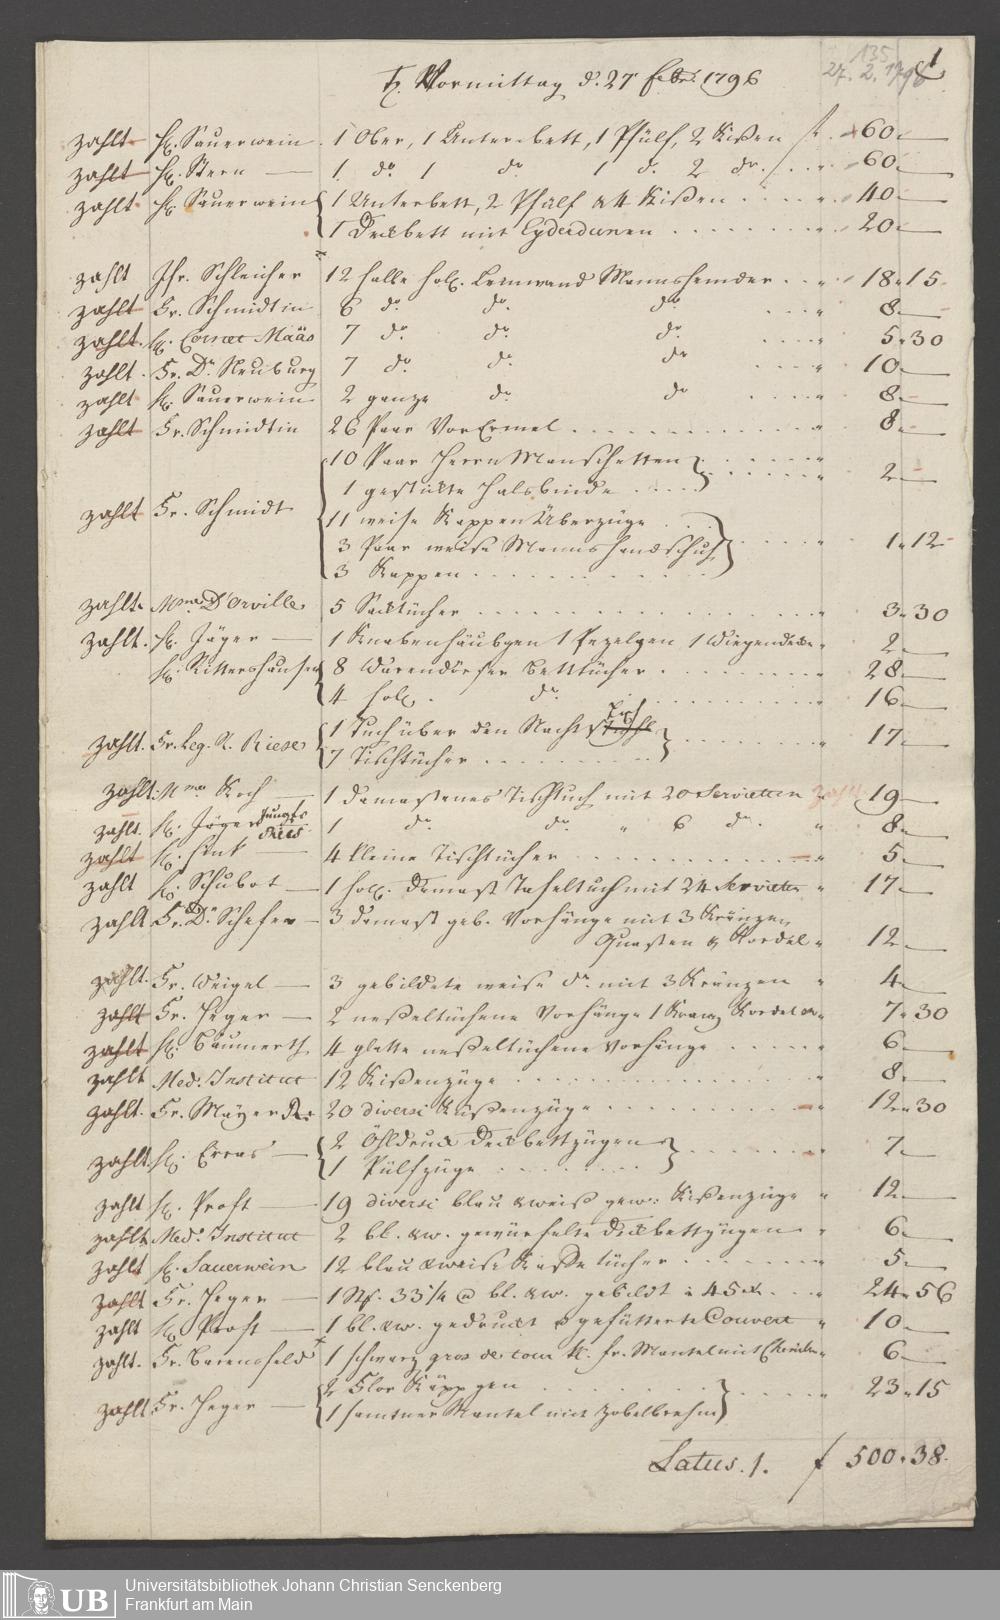 135
27. 2. 1796
1
Vormittag d. 27 febr. 1796
zahlt H. Sauerwein 1 Ober, 1 Unterbett, 1 Pfülf, 2 Kißen f 60 „ —
zahlt H. Stern — 1. do 1 do 1 do 2 do „ 60 „ —
zahlt H. Sauerwein 1 Unterbett, 2 Pfülf & 4 Kißen „ 40 „ —
1 Deckbett mit Eyderdunen „ 20 „ —
zahlt Schleicher 12 halbe holl. Leinwand Mannshemder „ 18 „ 15
zahlt Fr. Schmidtin 6 do do do „ 8 „ —
zahlt H. Cornet Maäs 7 do do do „ 5 „ 30
zahlt Fr. Dr Neuburg 7 do do do „ 10 „ —
zahlt H. Sauerwein 2 ganze do do „ 8 „ —
zahlt Fr. Schmidtin 26 Paar Vor Ermel „ 8 „ —
10 Paar Herrn Manschetten „
1 gestickte Halsbinde „ 2 „ —
zahlt Fr. Schmidt 11 weise Kappen Überzüge
3 Paar weise Manns handschuh „ 1 „ 12
3 Kappen
zahlt Mme D'Orville 5 Sacktücher „ 3 „ 30
zahlt H. Jäger — 1 Knabenhäubgen 1 Pezelgen 1 Wiegendecke „ 2 „ —
H. Rittershausen 8 Warendörfer Betttücher „ 28 „ —
4 holl. do „ 16 „ —
zahlt Fr. Leg. R. Riese 1 Tuch über den Nacht stuhl Tisch
7 Tischtücher „ 17 „ —
zahlt Mme Koch 1 damastenes Tischtuch mit 20 Servietten zahlt 19 „ —
zahlt H. Jäger 1 do do „ 6 do „ 8 „ —
zahlt H. Fink 4 kleine Tischtücher „ 5 „ —
zahlt H. Schubot — 1 holl. Damast Tafeltuch mit 24 Servietten „ 17 „ —
zahlt Fr. Dr Schefer — 3 damast geb. Vorhänge mit 3 Kränzen
Quasten & Kordel „ 12 „ —
zahlt Fr. Weigel — 3 gebildete weise do mit 3 Kränzen „ 4 „ —
zahlt Fr. Heger — 2 neßeltüchene Vorhänge 1 Kranz Kordel „ 7 „ 30
zahlt H. Baumerth 4 glatte neßeltüchene Vorhänge „ 6 „ —
zahlt Med. Institut 12 Kißenzüge „ 8 „ —
zahlt Fr. Mayer 20 diverse Küßenzüge „ 12 „ 30
zahlt H. Erras — 2 Öhldruck Deckbettzügen
1 Pülfzüge „ 7 „ —
zahlt H. Prost — 19 diverse blau & weiß gew. Kißenzüge „ 12 „ —
zahlt Med. Institut 2 bl. & w. gewürfelte Deckbettzügen „ 6 „ —
zahlt H. Sauerwein 12 blau & weise tücher „ 5 „ —
zahlt Fr. Heger — 1 Stk. 33 1/4 bl. & w. gebildt à 45 x „ 24 „ 56
zahlt H. Prost — 1 bl. & w. gedruckt gefütterte Couvert „ 10 „ —
zahlt Fr. Barensfeld 1 schwarz gros de tour fr. Mantel mit „ 6 „ —
2 Flor Käppgen
zahlt Fr. Heger — 1 samtner Mantel mit Zobelbrehm „ 23 „ 15
Latus. 1. f 500 „ 38
UB
Universitätsbibliothek Johann Christian Senckenberg
Frankfurt am Main